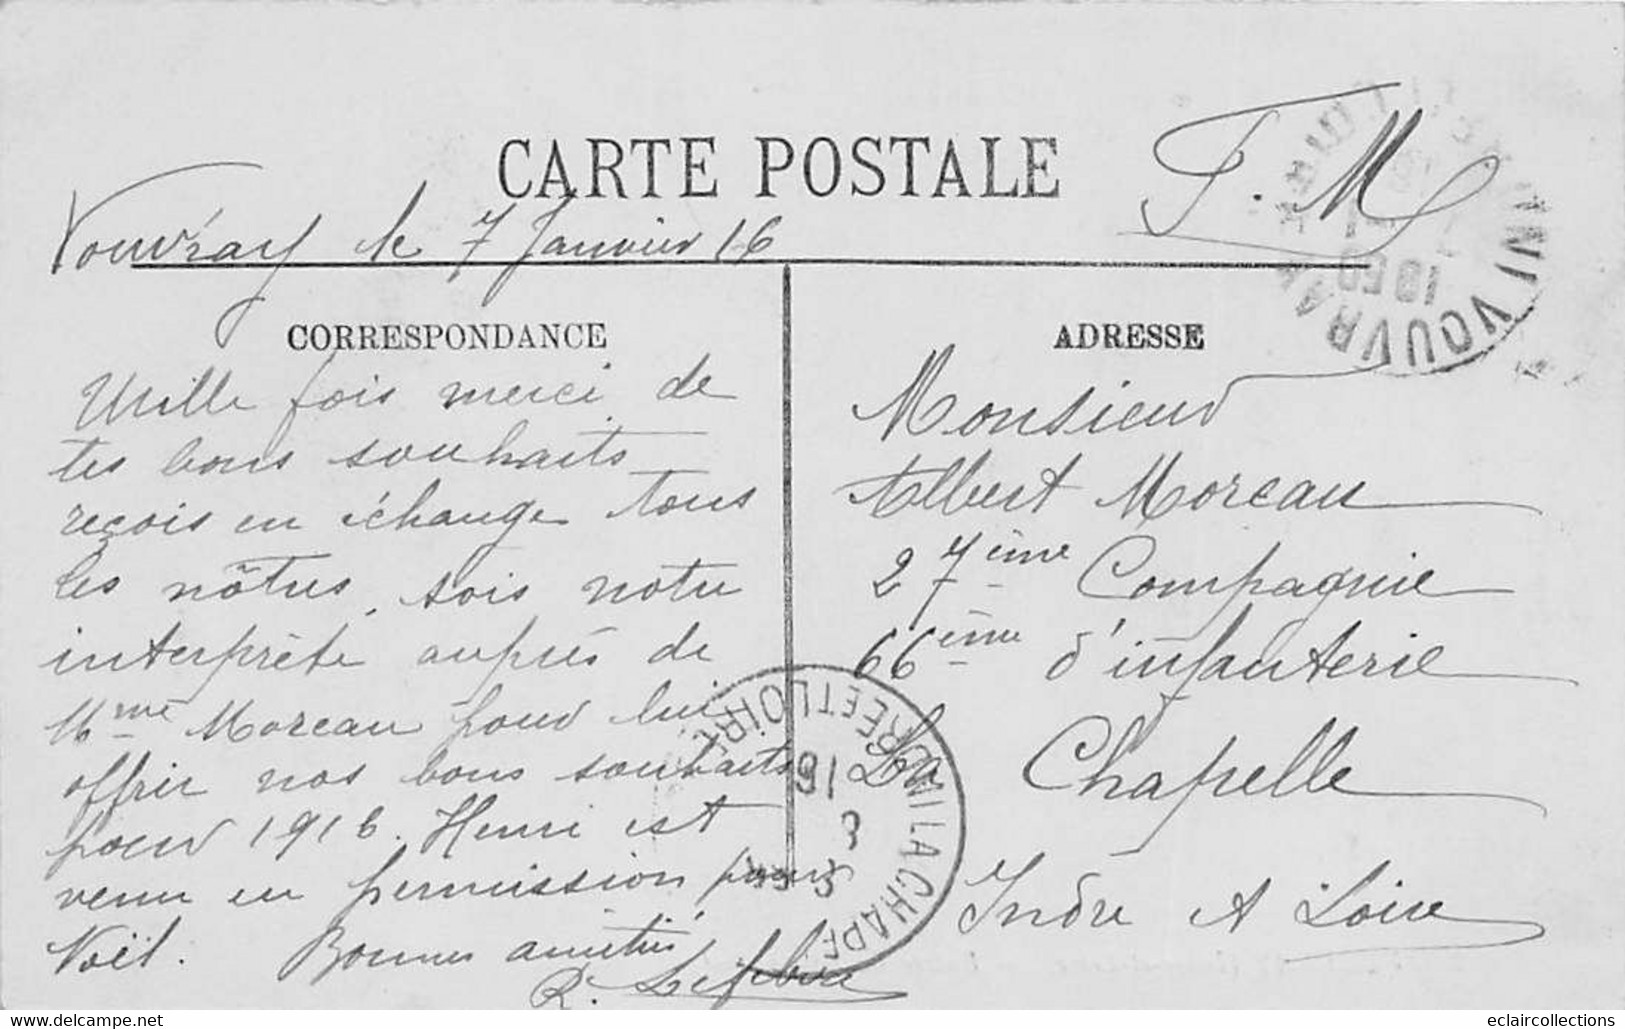 CARTE POSTALE
F. M
Vouvray le 7 Janvier 16
CORRESPONDANCE
Mille fois merci de
tes bons souhaits
reçois en échange tous
les nôtres, sois notre
interprète auprès de
Mme Moreau pour lui
offrir nos bons souhaits
pour 1916. Henri est
venu en permission pour
Noël. Bonnes amitiés
R. Lefebvre
ADRESSE
Monsieur
Albert Moreau
27ème Compagnie
66ème d'infanterie
La Chapelle
Indre A Loire
VOUVRAY
INDRE ET LOIRE
LA CHAPE
16
delcampe.net
eclaircollections